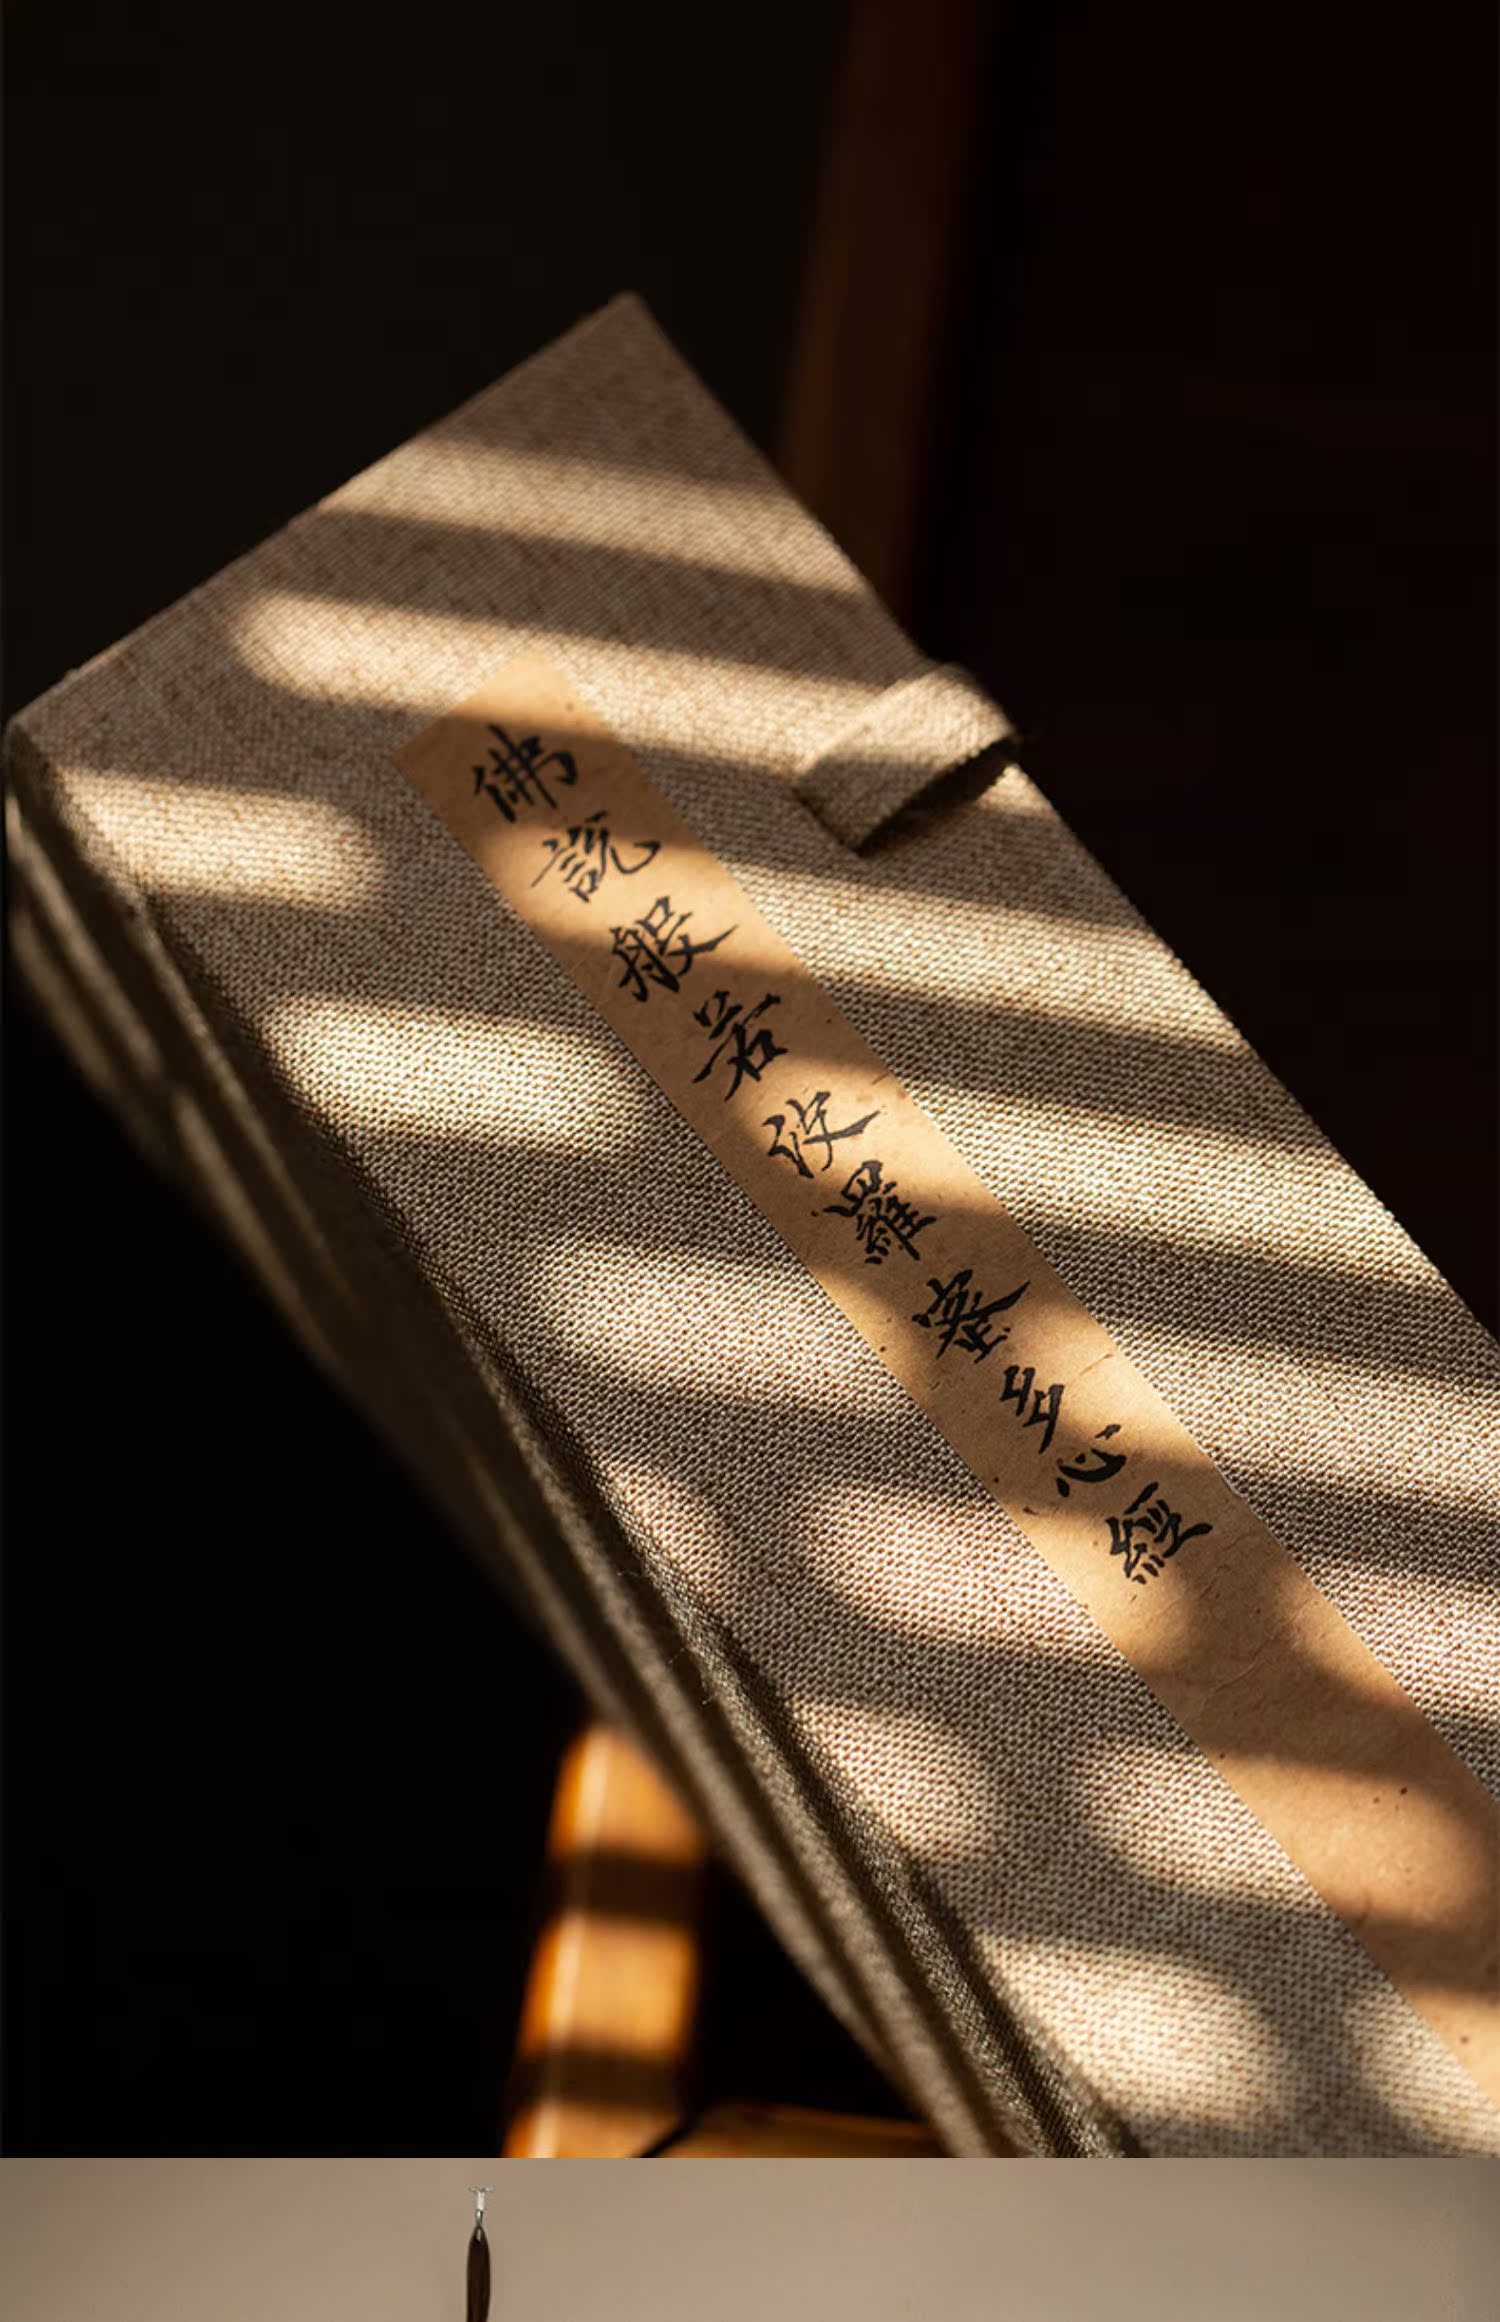 佛說般若波羅蜜多心經